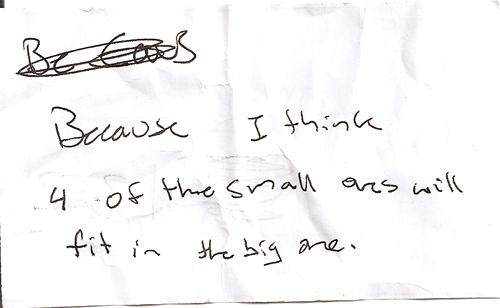 Because I think
4 of the small ones will
fit in the big one.